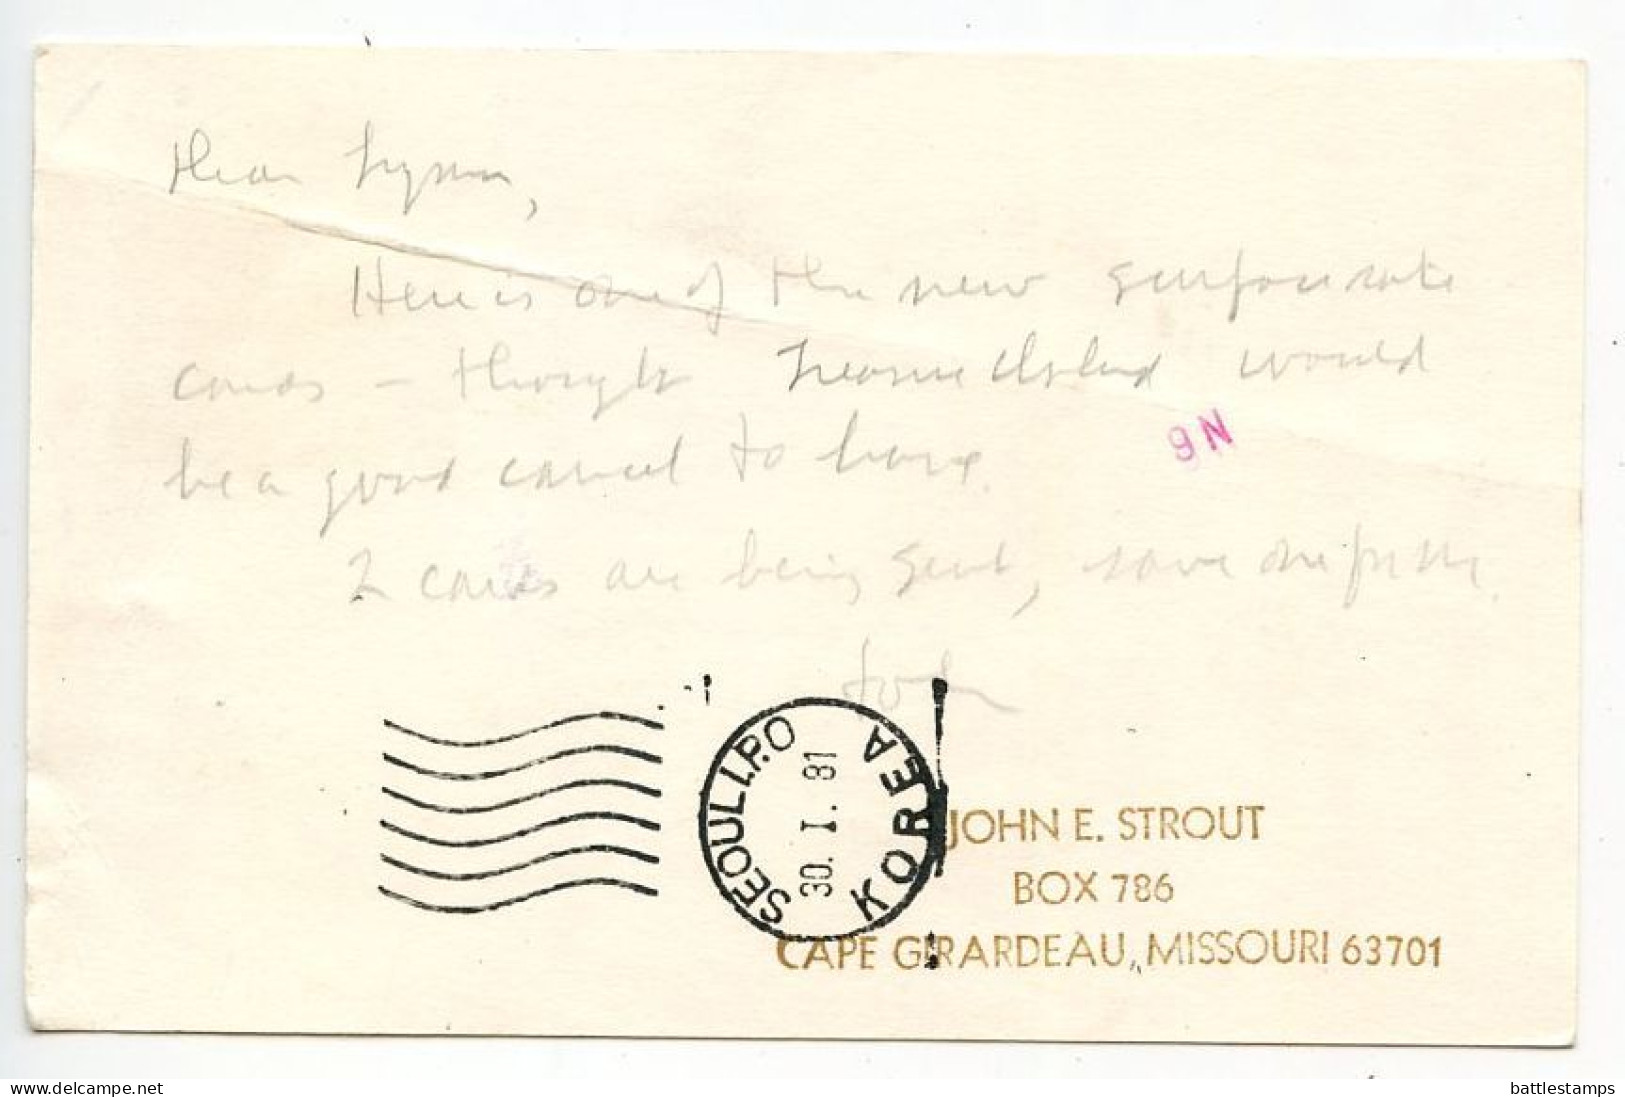 Dear Lyman,
Here is one of the new surface rate
cards – thought Island would
be a good cancel to have.
2 cards are being sent, save one for me.
John
9N
SEOUL I.P.O
30. I. 81
KOREA
JOHN E. STROUT
BOX 786
CAPE GIRARDEAU, MISSOURI 63701
www.delcampe.net
battlestamps